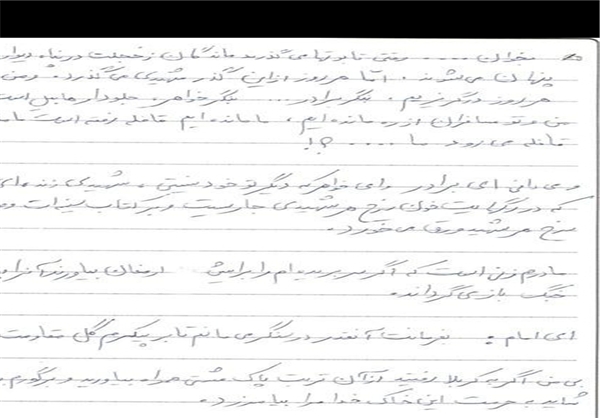 بخوان ..... وقتی تابوتها می گذرند ماندگان از خجلت در پناه دیوار
پنهان می شوند . اما هر روز از این گذر شهیدی می گذرد ، و من
هر روز در گریزم . دیگر برادر ... دیگر خواهر جلودار هابیل است
من و تو مسافران از ره مانده ایم ، ما مانده ایم قافله رفته است
قافله می رود ما ..... ؟!
و می دانی ای برادر و ای خواهر که دیگر تو خود نیستی ، شهیدی زنده ای
که در رگهایت خون سرخ هر شهیدی جاریست و بر کتاب سینه ات
سرخ هر شهید ورق می خورد .
مادرم زنی است که اگر سر بریده ام را برایش ارمغان بیاورند آنرا به
جنگ باز می گرداند .
ای امام : بفرمانت آنقدر در سنگر می مانم تا بر پیکرم گل مقاومت
بی من اگر به کربلا رفتید از آن تربت پاک مشتی همراه بیاورید و بر گورم
شاید به حرمت این خاک خدا مرا بیامرزد .